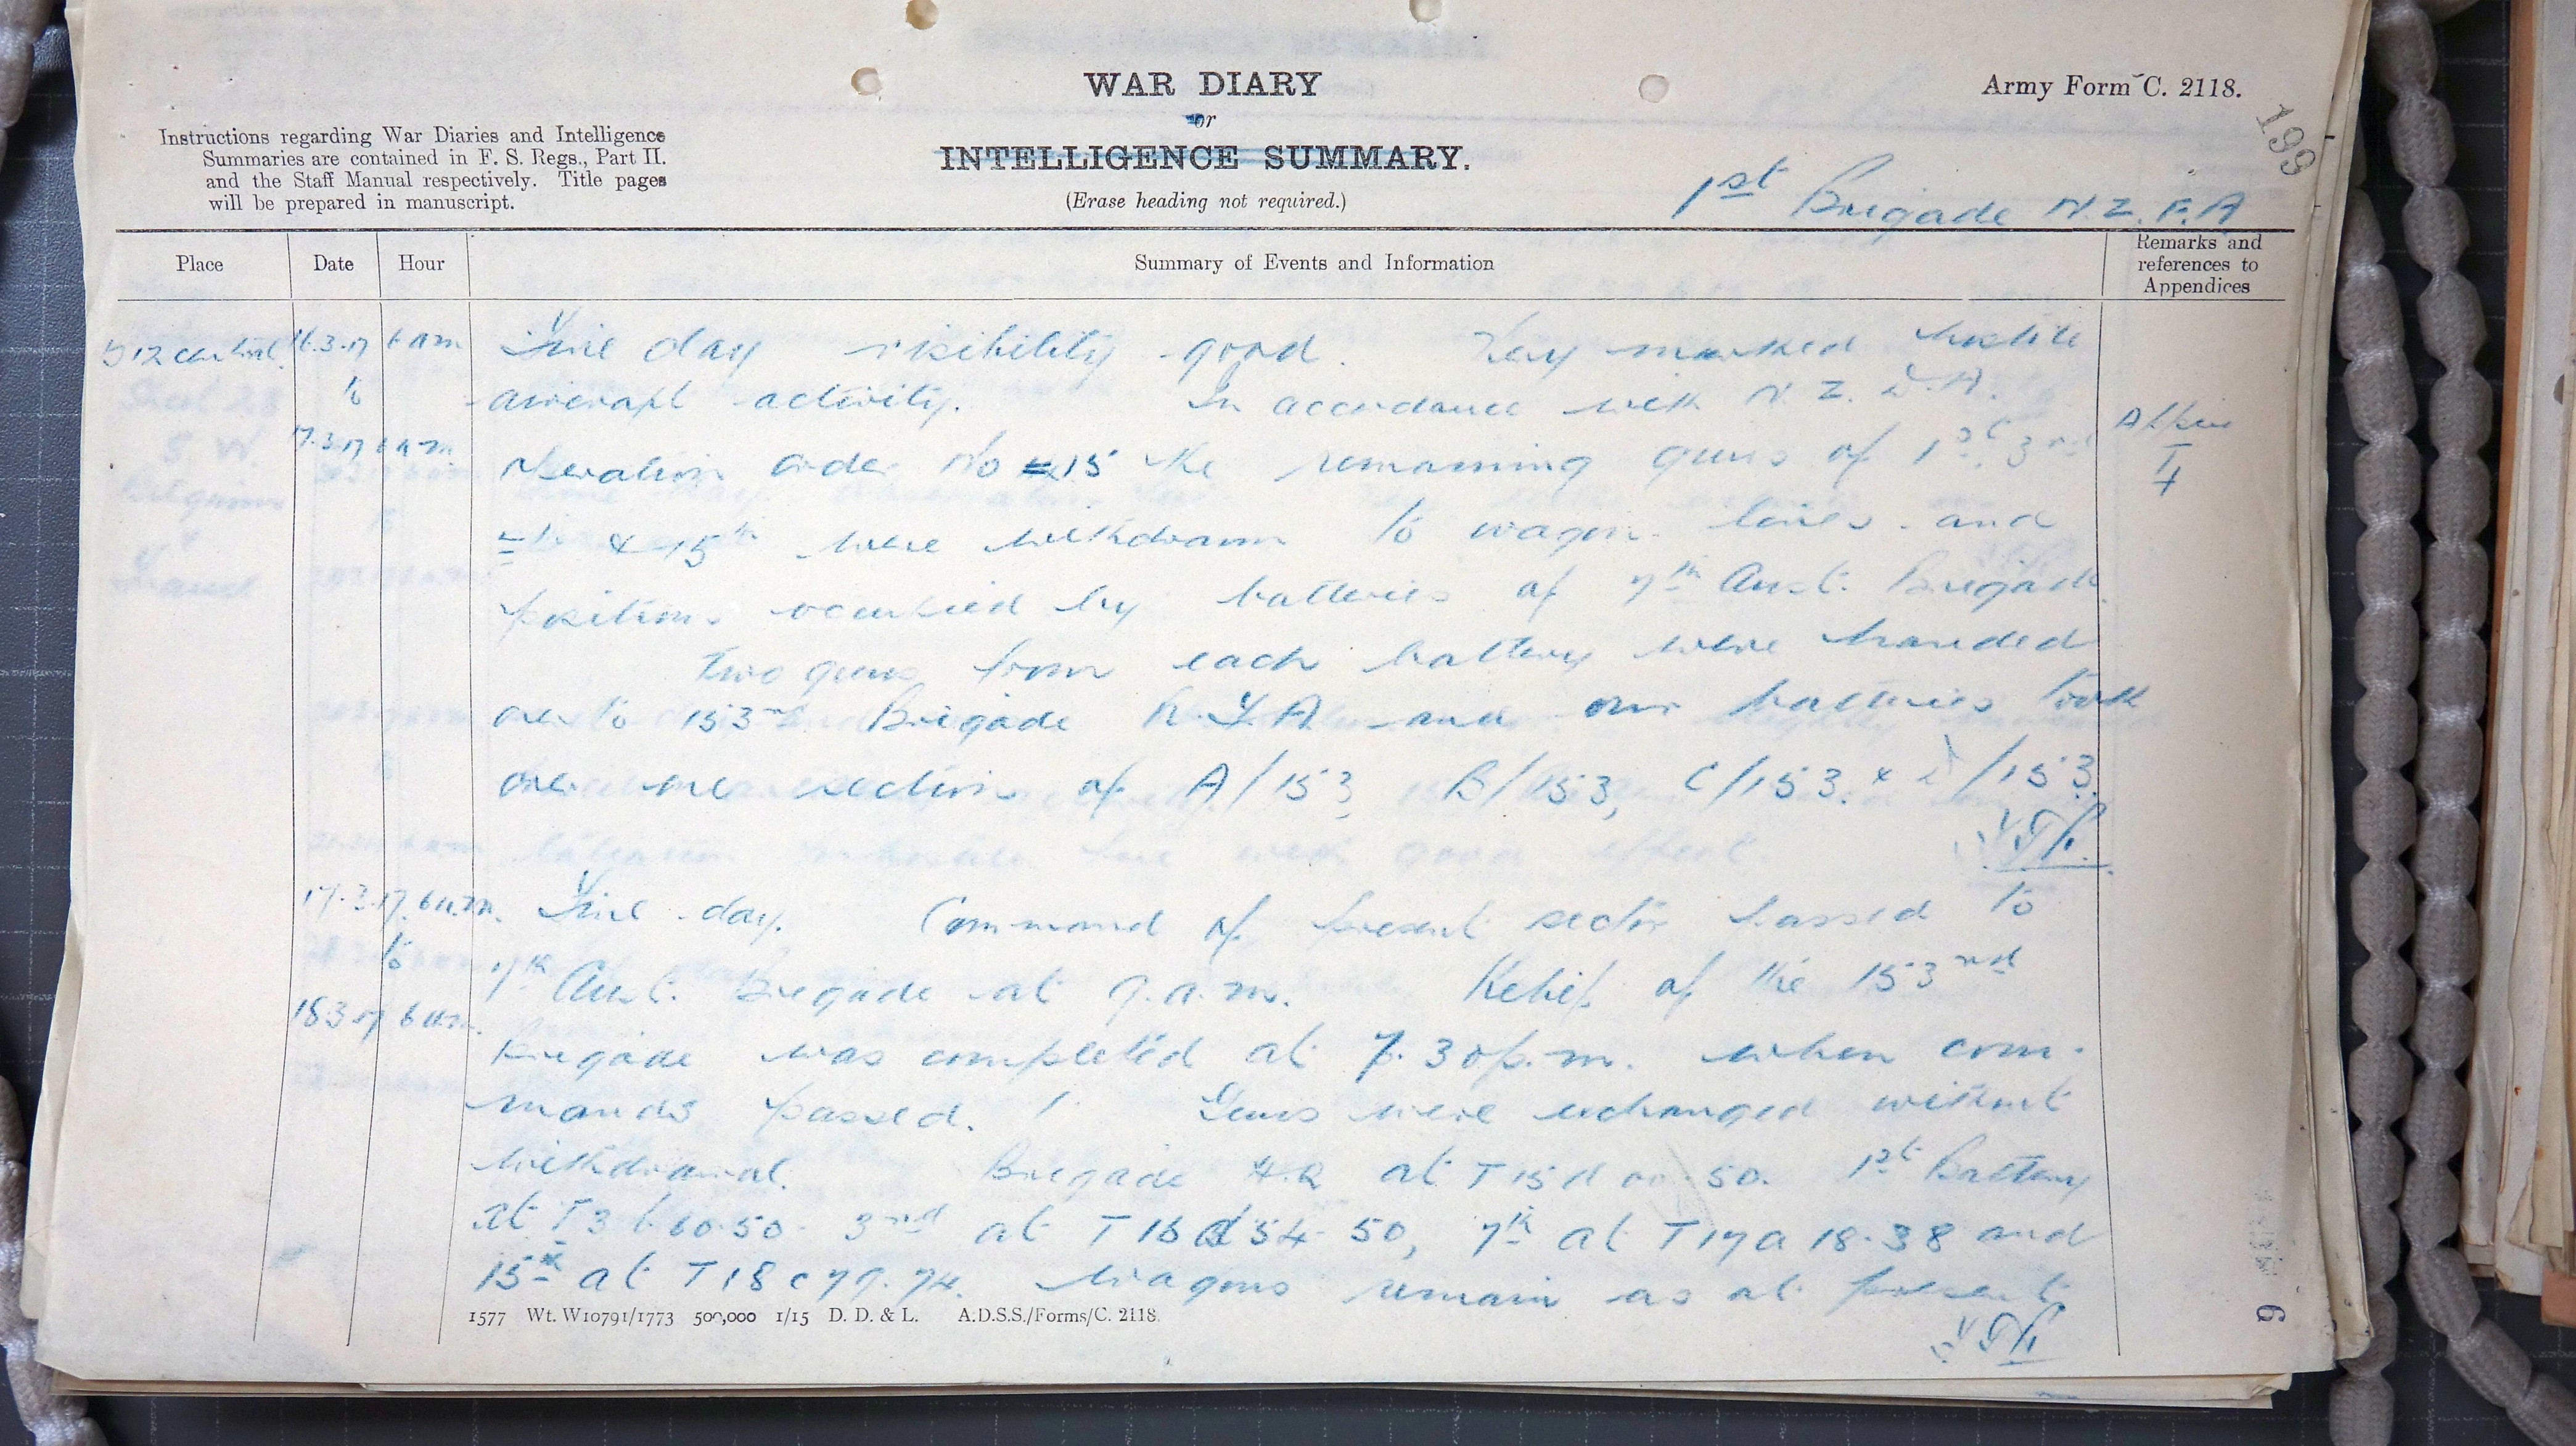 WAR DIARY
or
INTELLIGENCE SUMMARY.
(Erase heading not required.)
Army Form C. 2118.
199
Instructions regarding War Diaries and Intelligence
Summaries are contained in F. S. Regs., Part II.
and the Staff Manual respectively. Title pages
will be prepared in manuscript.
1st Brigade N.Z.F.A
Place
Date
Hour
Summary of Events and Information
Remarks and
references to
Appendices
12 central
16.3.17 6 am
to
17.3.17 6 am
Fine day visibility good. Very marked hostile
aircraft activity. In accordance with N.Z.D.A.
Operation order No 15 the remaining guns of 1st 3rd
& 15th were withdrawn to wagon lines and
positions occupied by batteries of 7th Aust. Brigade.
Two guns from each battery were handed
over to 153rd Brigade R.F.A and our batteries took
over one section of A/153 B/153, C/153 & D/153.
17.3.17 6 a.m.
to
18.3.17 6 am
Fine day. Command of present sector passed to
7th Aust. Brigade at 9.a.m. Relief of the 153rd
Brigade was completed at 7.30 p.m. when com-
mands passed. Guns were exchanged without
withdrawal. Brigade H.Q at T15 50. 1st Battery
at T3 60.50. 3rd at T16 54.50, 7th at T17a 18.38 and
15th at T18c 79.74. Wagons remain as at present
1577 Wt. W10791/1773 500,000 1/15 D. D. & L. A.D.S.S./Forms/C. 2118.